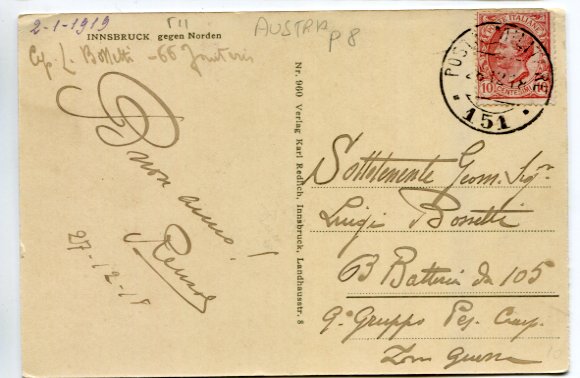 2-1-1919
INNSBRUCK gegen Norden
AUSTRIA
P8
Cap. L. Bossetti - 66
Buon anno!
Renzo
27-12-18
Nr. 960 Verlag Karl Redlich, Innsbruck, Landhausstr. 8
POSTE ITALIANE
10
CENTESIMI
POSTA MILITARE
151
Sottotenente Geom. Sigr.
Luigi Bossetti
63 Batteria da 105
9° Gruppo Pes. Camp.
Zona Guerra